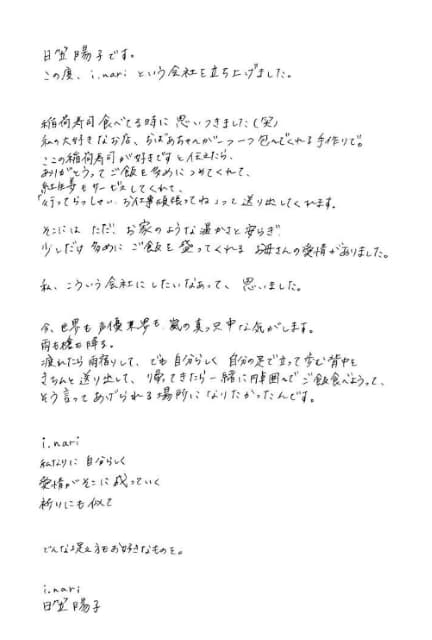 日笠陽子です。
この度、i.nari という会社を立ち上げました。
稲荷寿司食べてる時に思いつきました(笑)
私の大好きなお店、おばあちゃんが一つ一つ包んでくれる手作りで。
ここの稲荷寿司が好きですと伝えたら、
ありがとうってご飯を多めにつめてくれて、
紅生姜もサービスしてくれて、
「行ってらっしゃい。お仕事頑張ってね」って送り出してくれます。
そこにはただ、お家のような温かさと安らぎ
少しだけ多めにご飯を盛ってくれるお母さんの愛情がありました。
私、こういう会社にしたいなあって、思いました。
今、世界も声優業界も嵐の真っ只中な気がします。
雨も槍も降る。
疲れたら雨宿りして、でも自分らしく自分の足で立って歩む背中を
きちんと送り出して、帰ってきたら一緒に円卓囲んでご飯食べようって、
そう言ってあげられる場所になりたかったんです。
i.nari
私なりに自分らしく
愛情がそこに成っていく
祈りにも似て
どんな捉え方もお好きなものを。
i.nari
日笠陽子